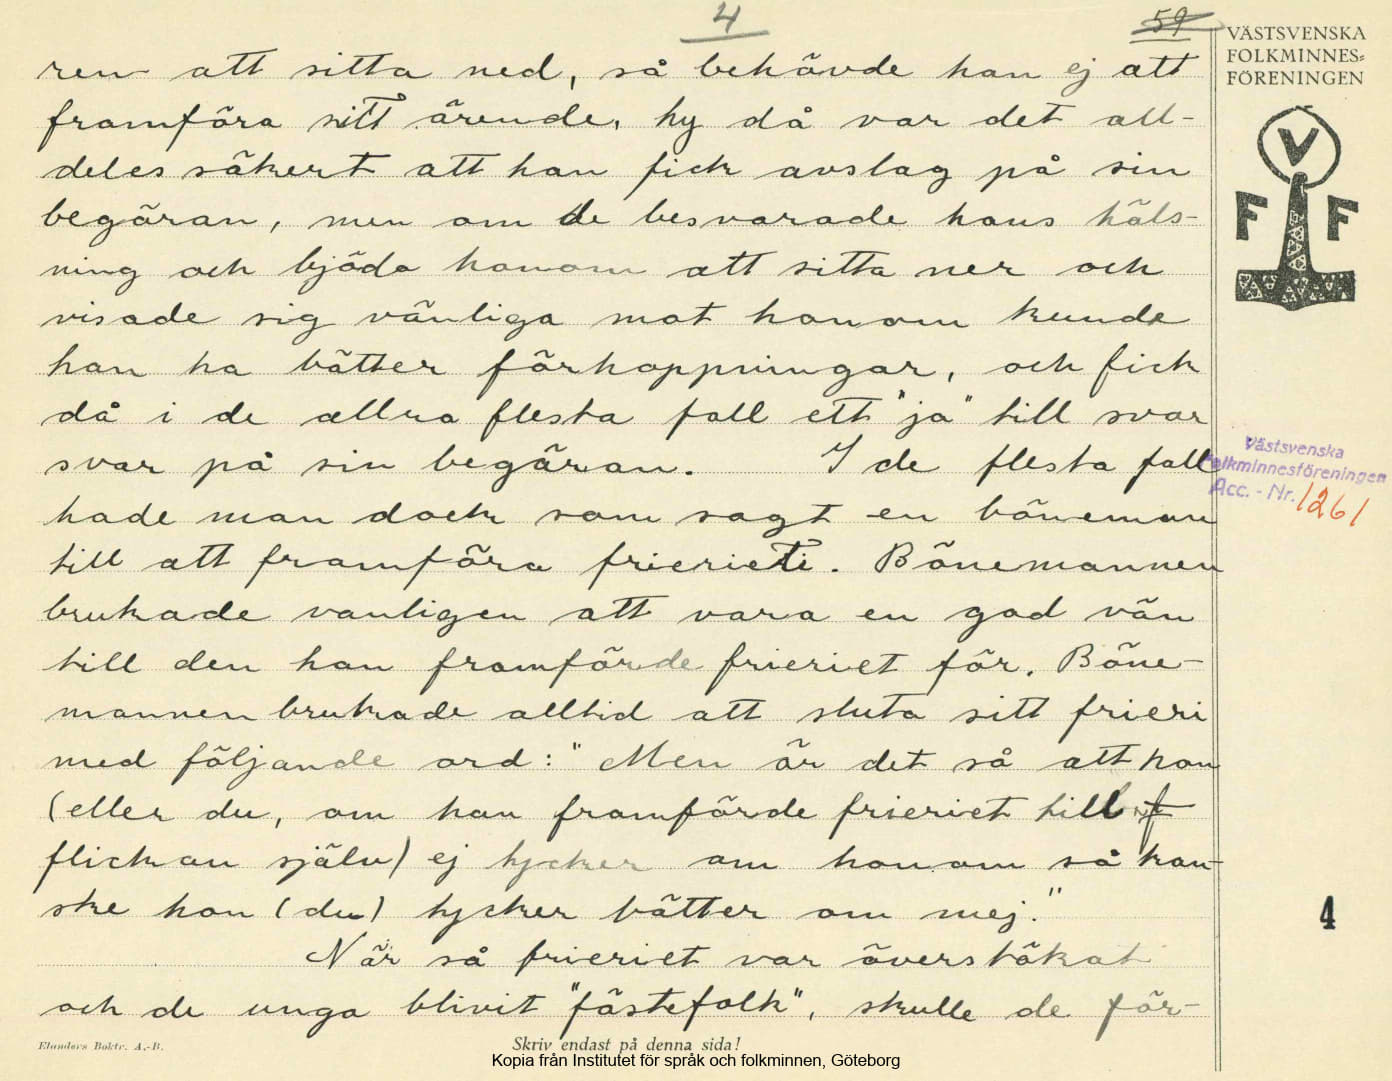 4
59
VÄSTSVENSKA
FOLKMINNES=
FÖRENINGEN
V
F F
ren att sitta ned, så behövde han ej att
framföra sitt ärende, ty då var det all-
deles säkert att han fick avslag på sin
begäran, men om de besvarade hans häls-
ning och bjödo honom att sitta ner och
visade sig vänliga mot honom kunde
han ha bätter förhoppningar, och fick
då i de allra flesta fall ett "ja" till svar
svar på sin begäran. I de flesta fall
hade man dock som sagt en böneman
till att framföra frieriet. Bönemannen
brukade vanligen att vara en god vän
till den han framförde frieriet för. Böne-
mannen brukade alltid att sluta sitt frieri
med följande ord: "Men är det så att hon
(eller du, om han framförde frieriet till
flickan själv) ej tycker om honom så kan-
ske hon (du) tycker bätter om mej."
När så frieriet var överstökat
och de unga blivit "fästefolk", skulle de för-
Västsvenska
Folkminnesföreningen
Acc. - Nr. 1261
4
Elanders Boktr. A.-B.
Skriv endast på denna sida!
Kopia från Institutet för språk och folkminnen, Göteborg